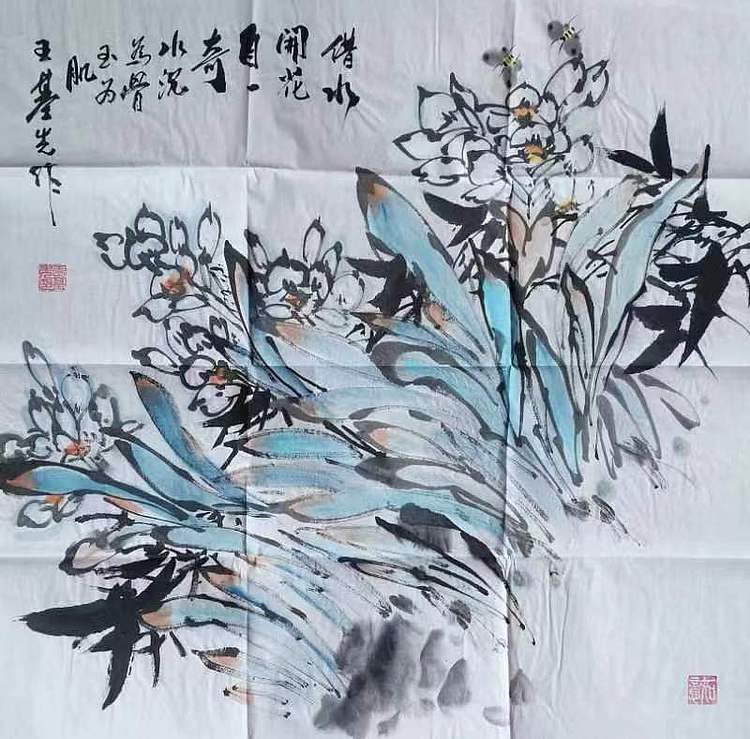 借水
開花
自一
奇
水沉
為骨
玉为
肌
王基先作